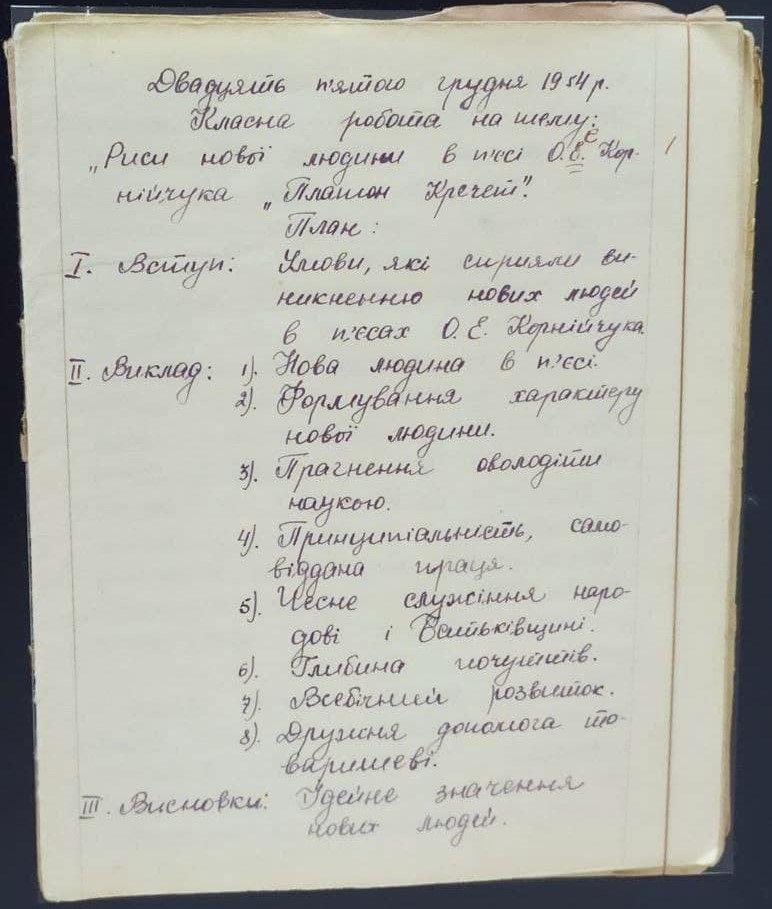 Двадцять п'ятого грудня 1954 р.
Класна робота на тему:
„Риси нової людини в п'єсі О.Е. Кор-
нійчука „Платон Кречет".
План:
I. Вступ: Умови, які сприяли ви-
никненню нових людей
в п'єсах О. Е. Корнійчука.
II. Виклад: 1). Нова людина в п'єсі.
2). Формування характеру
нової людини.
3). Прагнення оволодіти
наукою.
4). Принципіальність, само-
віддана праця.
5). Чесне служіння наро-
дові і Батьківщині.
6). Глибина почуттів.
7). Всебічний розвиток.
8). Дружня допомога то-
варишеві.
III. Висновки: Ідейне значення
нових людей.